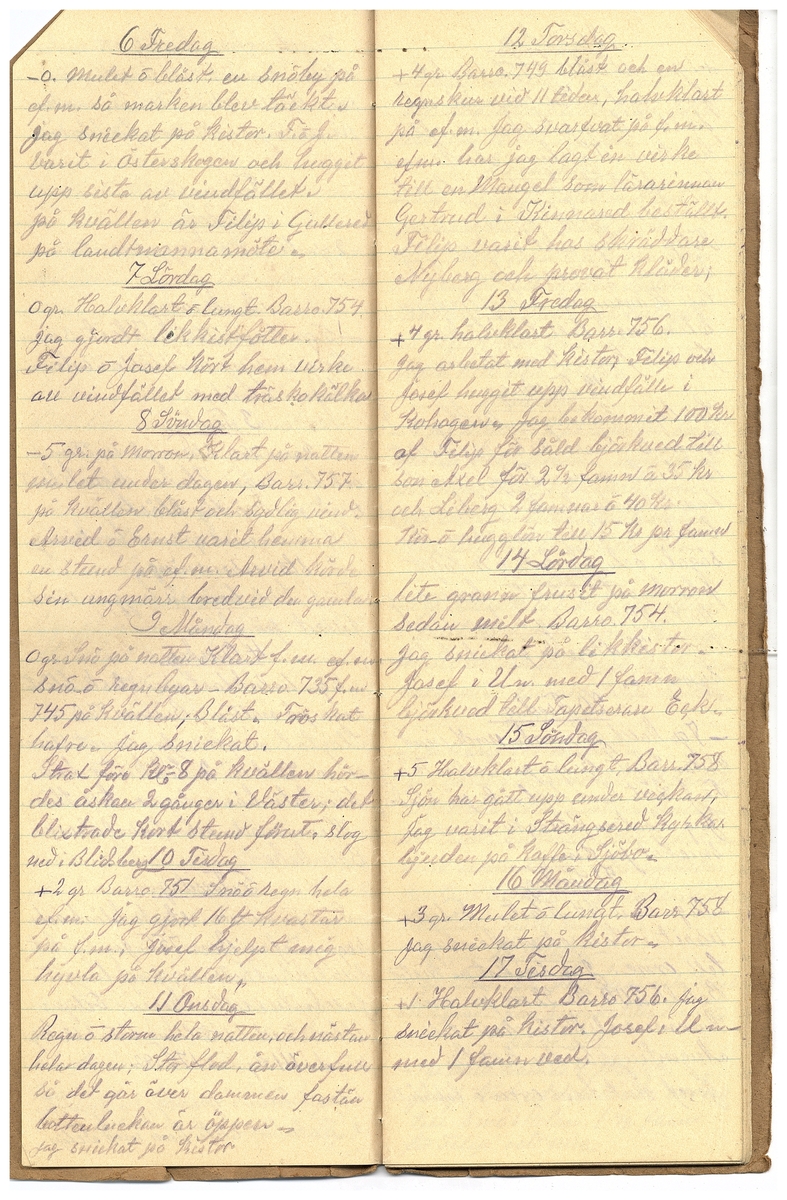 6 Fredag
-0. Mulet ō blåst. en snöby på
ef.m. så marken blev täckt.
Jag snickat på kistor. F. ō J.
varit i Österskogen och huggit
upp sista av vindfället.
på kvällen är Filip i Gullered
på landtmannamöte.
7 Lördag
0 gr. Halvklart ō lungt. Barro. 754.
jag gjordt likkistfötter.
Filip ō Josef kört hem virke
au vindfället med träskokälka
8 Söndag
-5 gr. på morron, Klart på natten
mulet under dagen, Barr. 757.
på kvällen blåst och sydlig vind.
Arvid ō Ernst varit hemma
en stund på ef.m. Arvid körde
sin ungmärr bredvid den gamla
9 Måndag
0 gr Snö på natten Klart f.m. ef.m
snö ō regnbyar - Barro 735 f.m
745 på kvällen; Blåst. Tröskat
hafre. jag snickat.
Strax före Kl. 8 på kvällen hör-
des åskan 2 gånger i Väster; det
blixtrade kort stund först. slog
ned i Blidsberg
10 Tisdag
+2 gr Barro. 751 Snö ō regn hela
ef.m. Jag gjort 16 st kvastar
på f.m.; Josef hjelpt mig
hyvla på kvällen,,
11 Onsdag
Regn ō storm hela natten, och nästan
hela dagen; Stor flod, ån överfull
så det går över dammen fastän
bottenluckan är öppen
jag snickat på kistor
12 Torsdag
+4 gr. Barro. 749 blåst och en
regnskur vid 11 tiden, halvklart
på ef.m. Jag svarfvat på f.m.
efm. har jag lagt in virke
till en Mangel som lärarinnan
Gertrud i Kinnared beställt.
Filip varit hos skräddare
Nyberg och provat kläder;
13 Fredag
+4 gr. halvklart Barr. 756.
jag arbetat med kistor, Filip och
Josef huggit upp vindfälle i
Kohagen. jag bekommit 100 Kr
af Filip för såld björkved till
son Axel för 2½ famn á 35 kr
och Liberg 2 famnar á 40 Kr.
Kör- ō hugglön till 15 Kr pr famn
14 Lördag
lite grann fruset på morron
sedan milt Barro 754.
jag snickat på likkistor.
Josef i Un. med 1 famn
björkved till Tapetserare Eek.
15 Söndag
+5 Halvklart ō lungt, Barr. 758
Sjön har gått upp under veckan,
Jag varit i Strängsered Kyrka
hjerden på kaffe i Sjöbo
16 Måndag
+3 gr. Mulet ō lungt. Barr 758
jag snickat på kistor
17 Tisdag
+1 Halvklart Barro 756. jag
snickat på kistor. Josef i Un
med 1 famn ved.